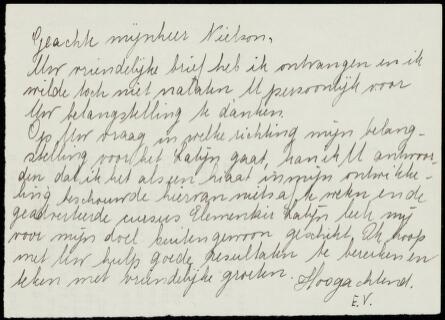 Geachte mijnheer Nielson,
Uw vriendelijke brief heb ik ontvangen en ik
wilde toch niet nalaten U persoonlijk voor
Uw belangstelling te danken.
Op Uw vraag in welke richting mijn belang-
stelling voor het Latijn gaat, kan ik U antwoor-
den dat ik het als een hiaat in mijn ontwikke-
ling beschouwde hiervan niets af te weten en de
geadverteerde cursus Elementair Latijn leek mij
voor mijn doel buitengewoon geschikt. Ik hoop
met Uw hulp goede resultaten te bereiken en
teken met vriendelijke groeten. Hoogachtend.
E.V.